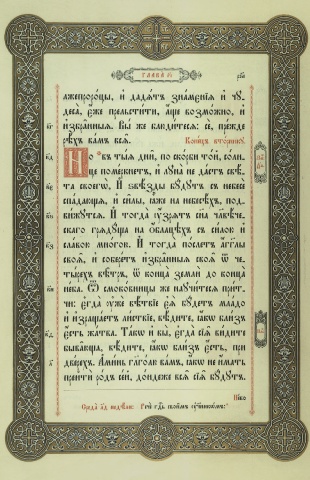 ГЛАВА г҃і
лжепроро́цы, и҆ дадѧ́тъ зна́менїѧ и҆ чꙋ-
деса̀, є҆́же прельсти́ти, а҆́ще возмо́жно, и҆
и҆збра̑нныѧ. Вы́ же блюди́тесѧ: сѐ, пре́жде
рѣ́хъ ва́мъ всѧ̑. Коне́цъ вто́рникꙋ.
Но въ ты̑ѧ дни̑, по ско́рби то́й, со́лн-
це поме́ркнетъ, и҆ лꙋна̀ не да́стъ свѣ́-
та своегѡ̀. И҆ ѕвѣ́зды бꙋ́дꙋтъ съ небесѐ
спа́дающѧ, и҆ си̑лы, ꙗ҆̀же на небесѣ́хъ, под-
ви́жꙋтсѧ. И҆ тогда̀ ᲂу҆́зрѧтъ сн҃а чл҃вѣ́че-
скаго грѧдꙋ́ща на ѻ҆́блацѣхъ съ си́лою и҆
сла́вою мно́гою. И҆ тогда̀ по́слетъ а҆́гг҃лы
своѧ̑, и҆ собере́тъ и҆збра̑нныѧ своѧ̑ ѿ че-
ты́рехъ вѣ̑тръ, ѿ конца̀ землѝ до конца̀
не́ба. Ѿ смоко́вницы же наꙋчи́тесѧ при́т-
чи: є҆гда̀ ᲂу҆жѐ вѣ́твїе є҆ѧ̀ бꙋ́детъ мла́до
и҆ и҆зраща́етъ ли́ствїе, вѣ́дите, ꙗ҆́кѡ бли́з̾
є҆́сть жа́тва. Та́кѡ и҆ вы̀, є҆гда̀ сїѧ̑ ви́дите
быва̑юща, вѣ́дите, ꙗ҆́кѡ бли́з̾ є҆́сть, при
две́рехъ. А҆ми́нь гл҃го́лю ва́мъ, ꙗ҆́кѡ не и҆́мать
прейтѝ ро́дъ се́й, до́ндеже всѧ̑ сїѧ̑ бꙋ́дꙋтъ.
Не́бо